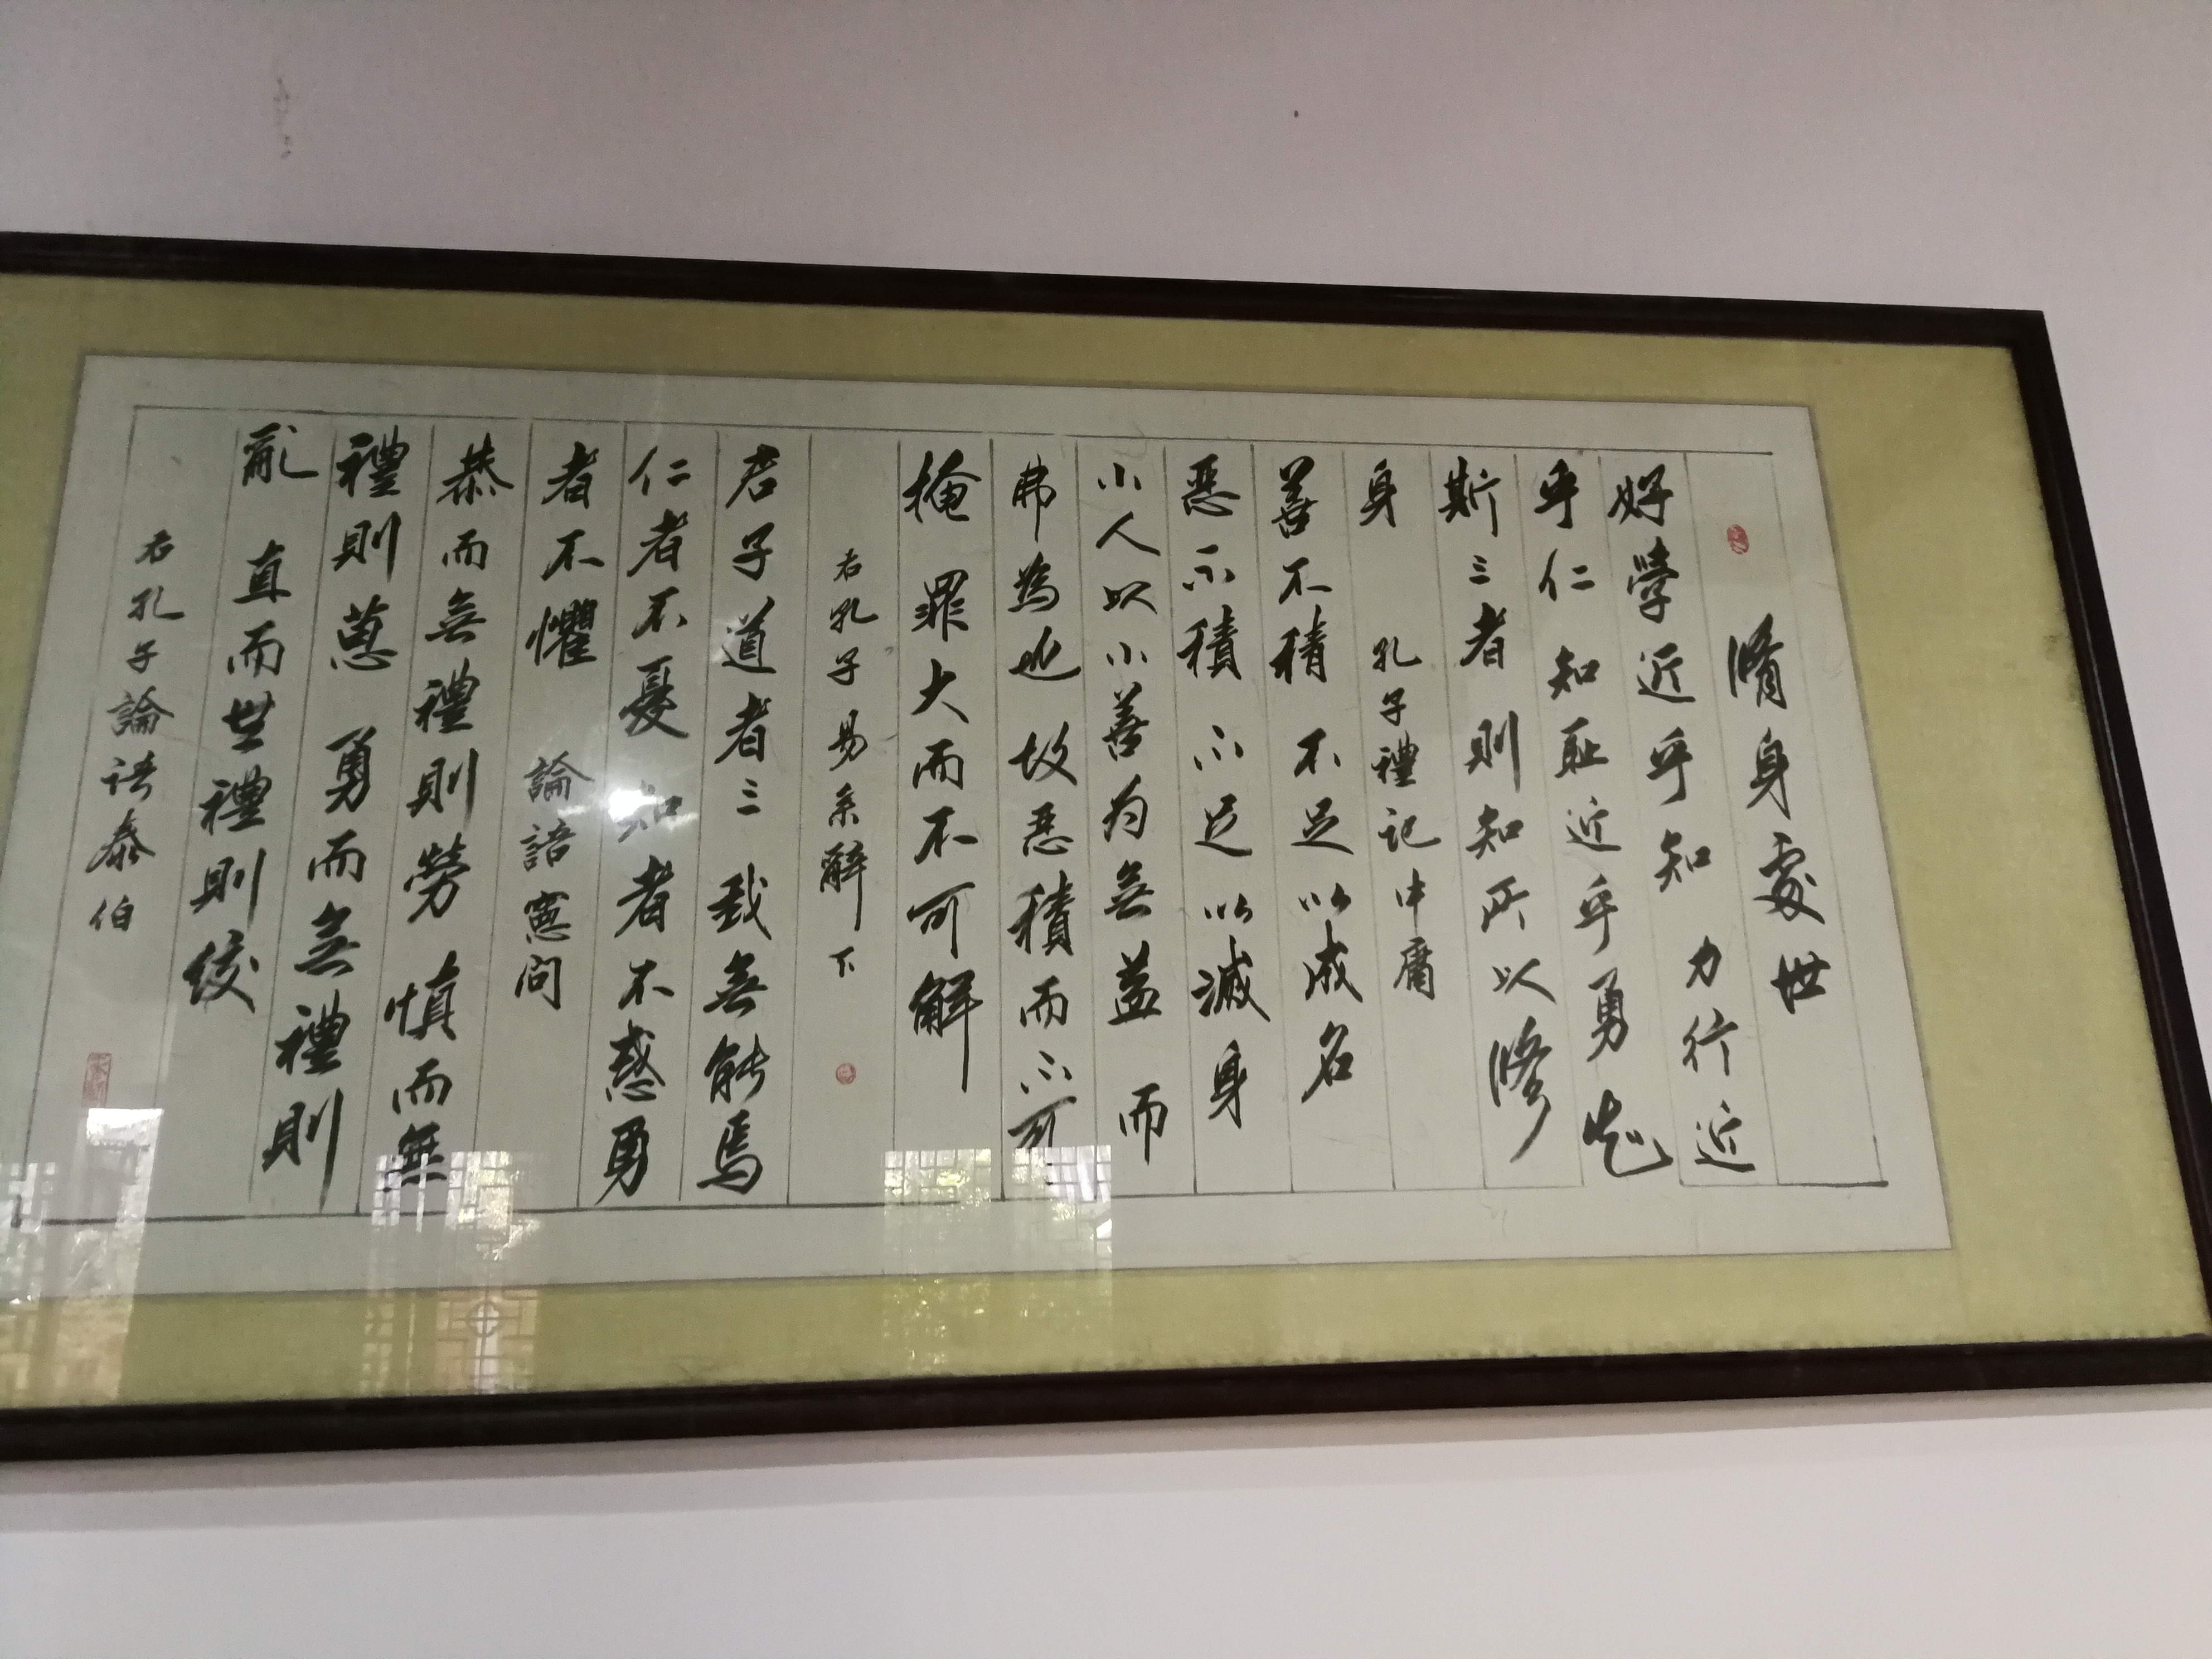 脩身處世
好學近乎知 力行近
乎仁知恥近乎勇 知
斯三者則知所以修
身 孔子禮記中庸
善不積不足以成名
惡不積不足以滅身
小人以小善為無益而
弗為也故惡積而不可
掩 罪大而不可解
右孔子易系辭下
君子道者三 我無能焉
仁者不憂 知者不惑勇
者不懼 論語憲問
恭而無禮則勞 慎而無
禮則葸 勇而無禮則
亂 直而無禮則絞
右孔子論語泰伯